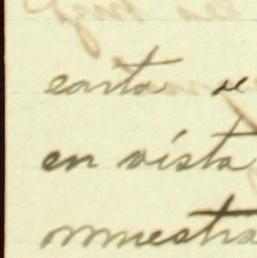 carta de
en vista
muestra